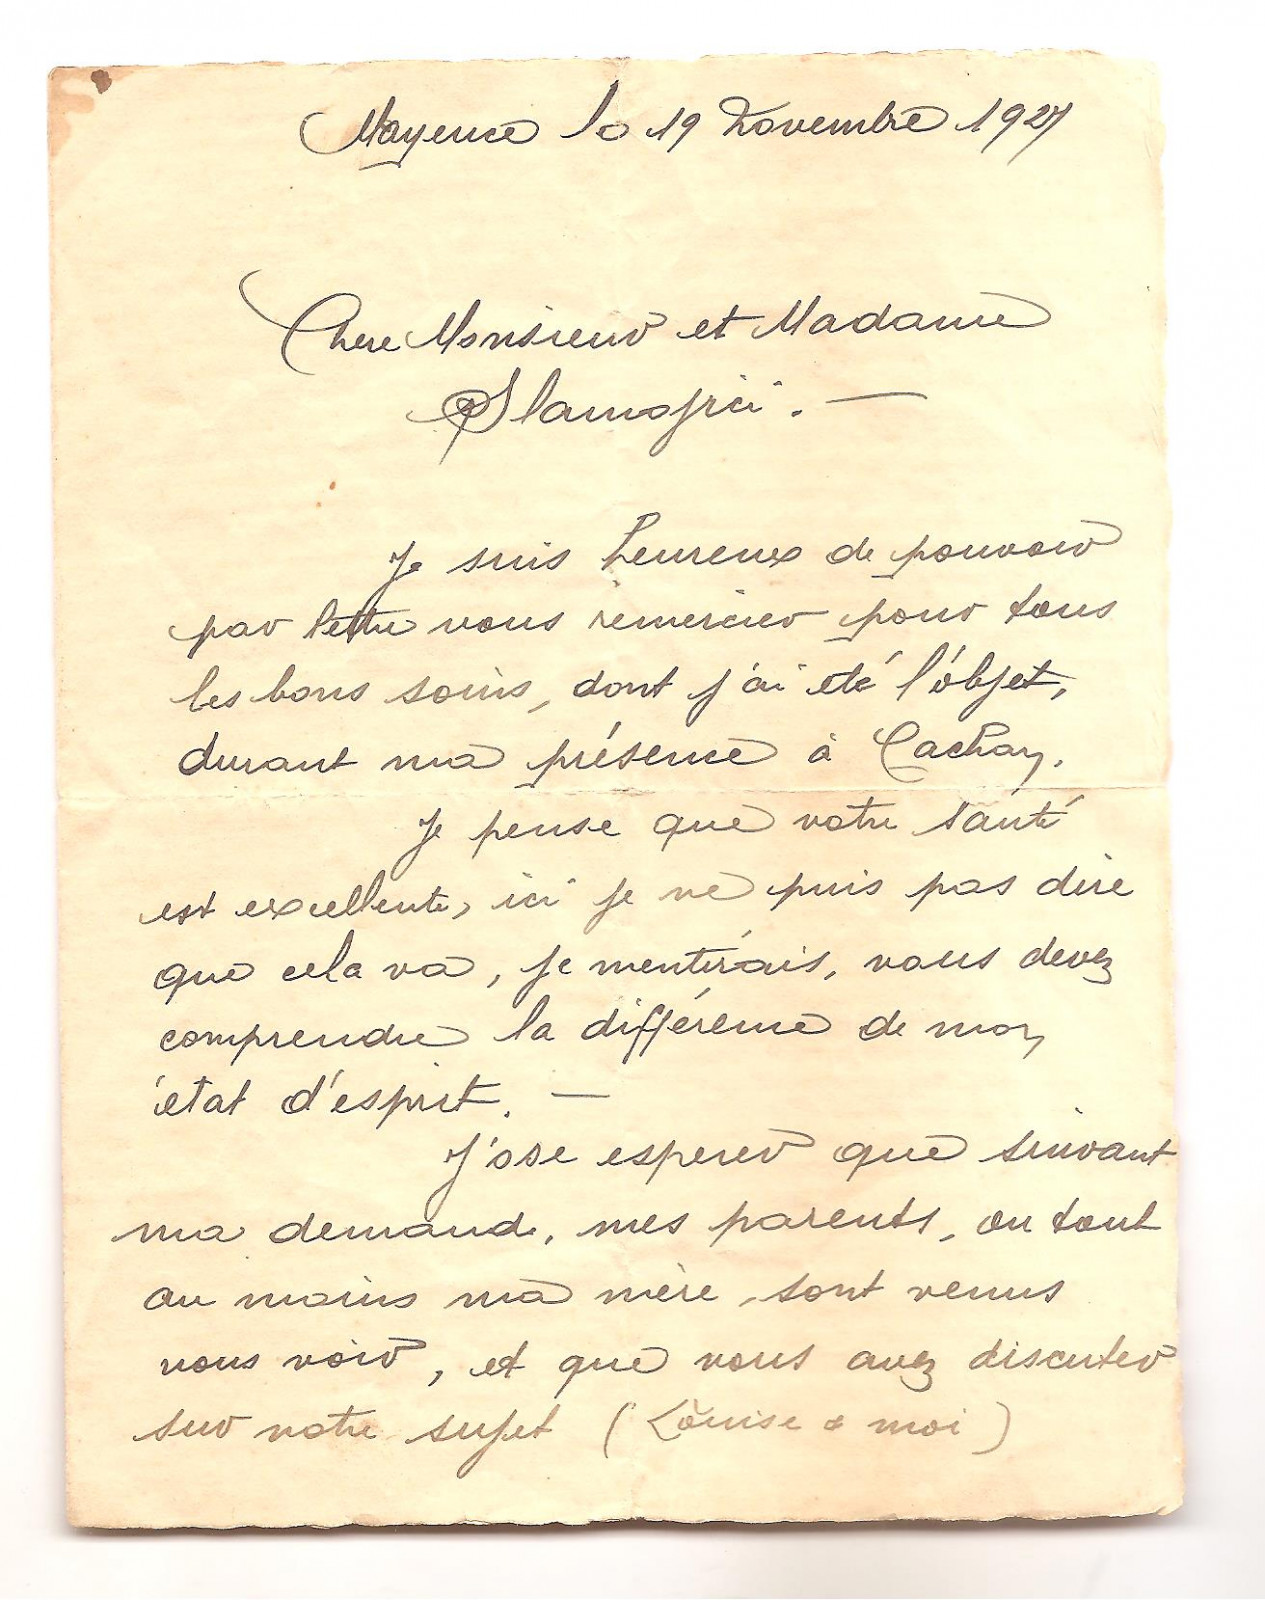 Mayence le 19 Novembre 1927
Chere Monsieur et Madame
Je suis heureux de pouvoir
par lettre vous remercier pour tous
les bons soins, dont j'ai été l'objet,
durant ma présence à Cachan.
Je pense que votre santé
est excellente, ici je ne puis pas dire
que cela va, je mentirais, vous devez
comprendre la différence de mon
état d'esprit. —
J'ose esperer que suivant
ma demande, mes parents, ou tout
au moins ma mère, sont venus
vous voir, et que vous avez discuter
sur notre sujet (Louise & moi)